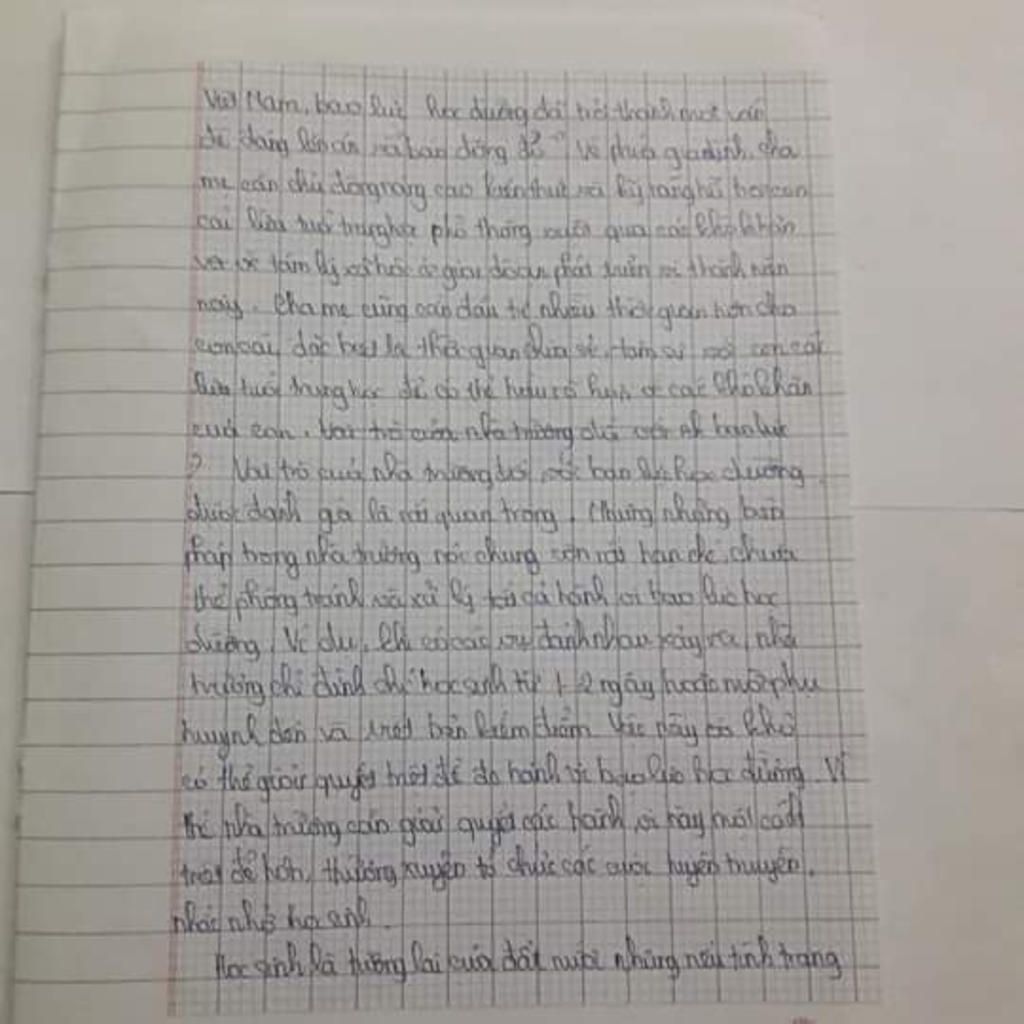 Việt Nam, bạo lực học đường đã trở thành một vấn
đề đáng lên án và báo động đỏ". Về phía gia đình, cha
mẹ cần chủ động nâng cao kiến thức và kỹ năng hỗ trợ con
cái lứa tuổi trung học phổ thông vượt qua các khó khăn
về tâm lý xã hội ở giai đoạn phát triển vị thành niên
này. Cha mẹ cũng cần đầu tư nhiều thời gian hơn cho
con cái, đặc biệt là thời gian chia sẻ, tâm sự với con cái
lứa tuổi trung học để có thể hiểu rõ hơn các khó khăn
của con. Vai trò của nhà trường đối với bạo lực
? Vai trò của nhà trường đối với bạo lực học đường
được đánh giá là rất quan trọng. Nhưng những biện
pháp trong nhà trường nói chung còn rất hạn chế, chưa
thể phòng tránh và xử lý tất cả hành vi bạo lực học
đường. Ví dụ, khi có các vụ đánh nhau xảy ra, nhà
trường chỉ đình chỉ học sinh từ 1-2 ngày hoặc mời phụ
huynh đến và viết bản kiểm điểm. Việc này khó
có thể giải quyết triệt để hành vi bạo lực học đường. Vì
thế nhà trường cần giải quyết các hành vi này một cách
triệt để hơn, thường xuyên tổ chức các cuộc tuyên truyền,
nhắc nhở học sinh.
Học sinh là tương lai của đất nước nhưng nếu tình trạng